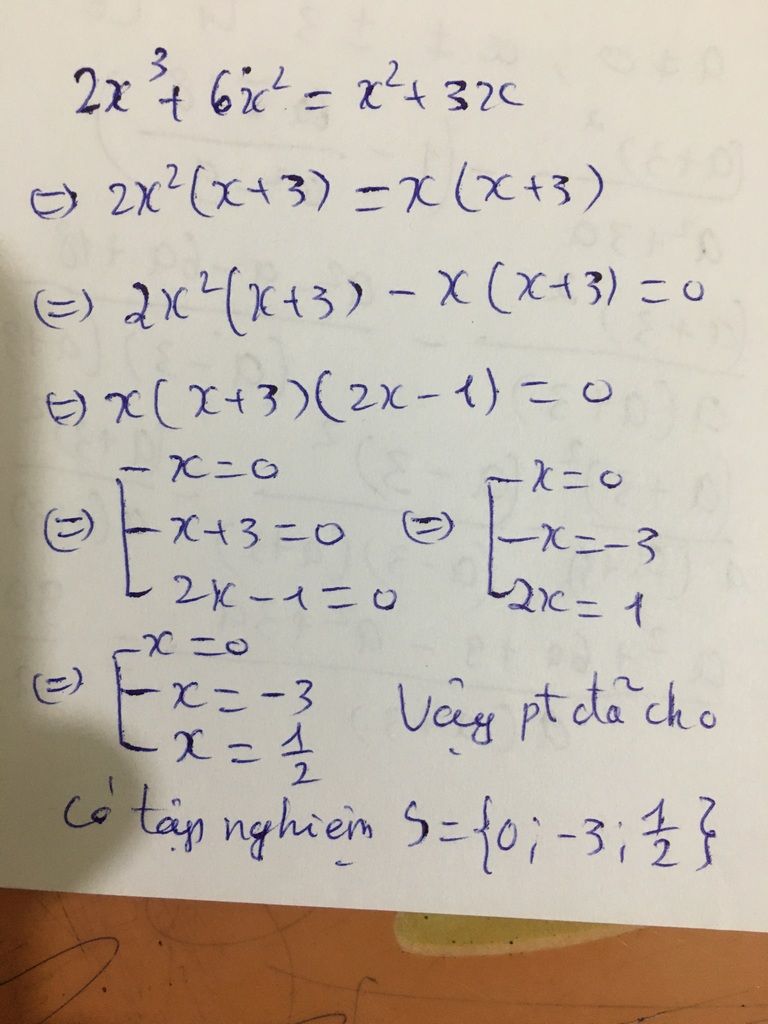 2x³ + 6x² = x² + 3x
⇔ 2x²(x+3) = x(x+3)
⇔ 2x²(x+3) - x(x+3) = 0
⇔ x(x+3)(2x-1) = 0
⇔ [ x=0 ⇔ [ x=0
x+3=0 x=-3
2x-1=0 2x=1
⇔ [ x=0
x=-3 Vậy pt đã cho
x=1/2
có tập nghiệm S={0; -3; 1/2}